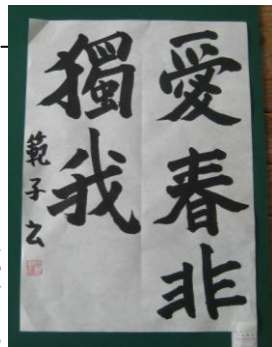 愛春非
獨我
範子書